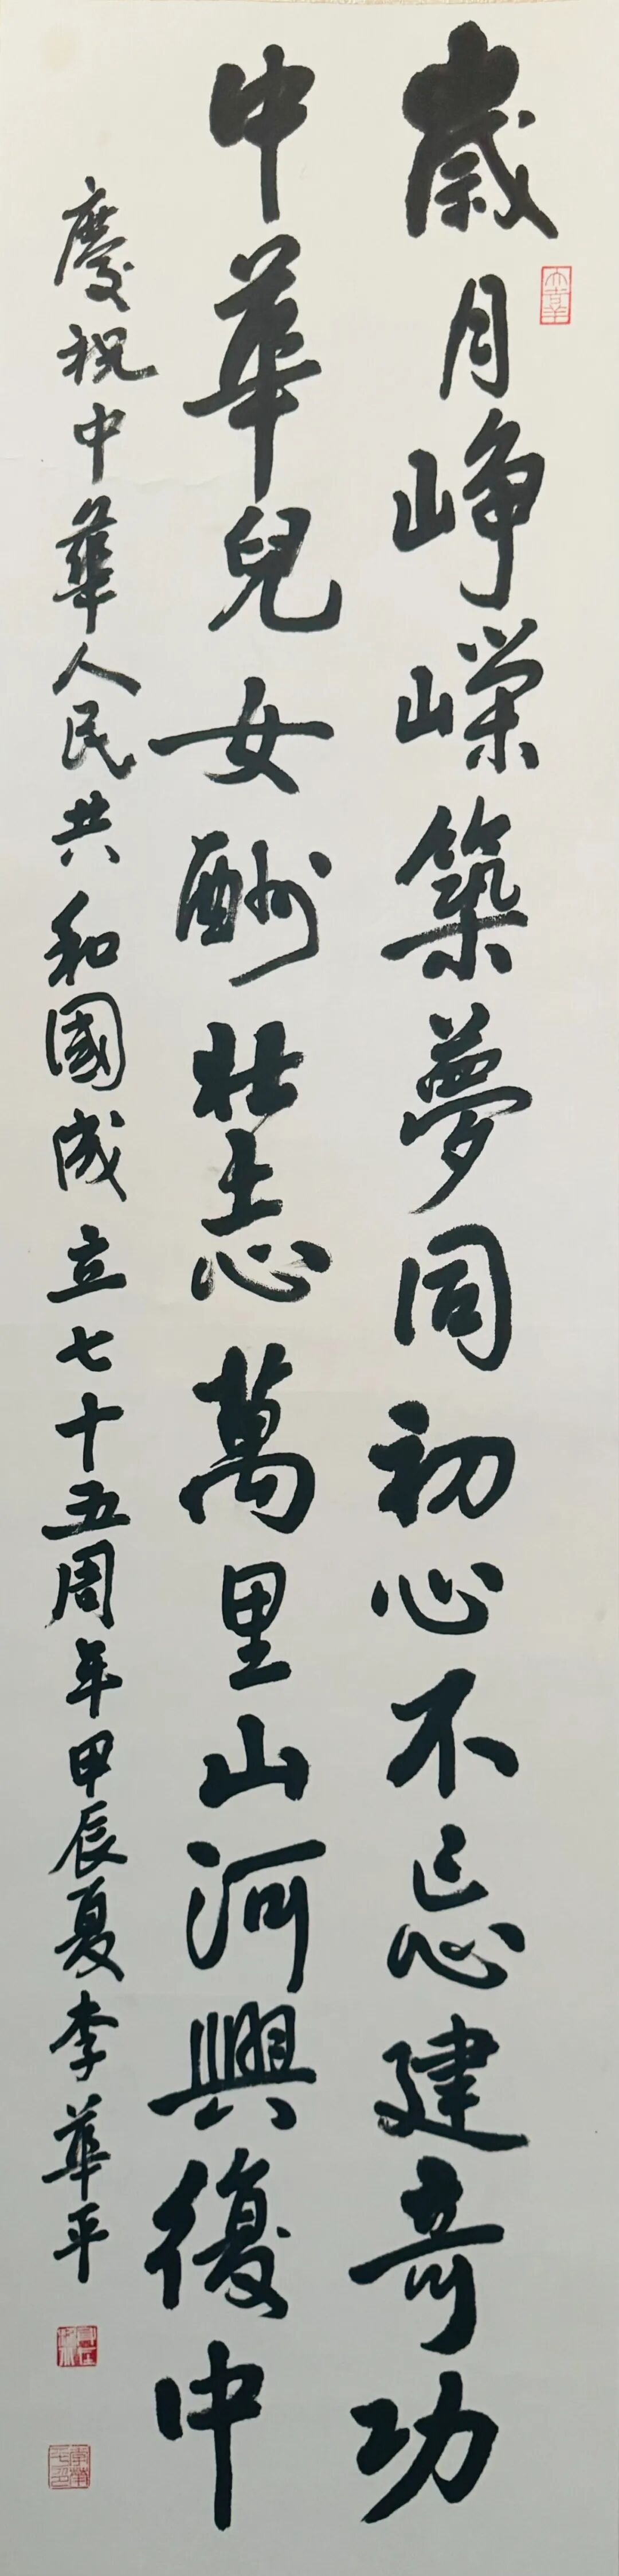 歲月崢嶸築夢同初心不忘建奇功
中華兒女酬壯志萬里山河興復中
慶祝中華人民共和國成立七十五周年甲辰夏李華平
大吉羊